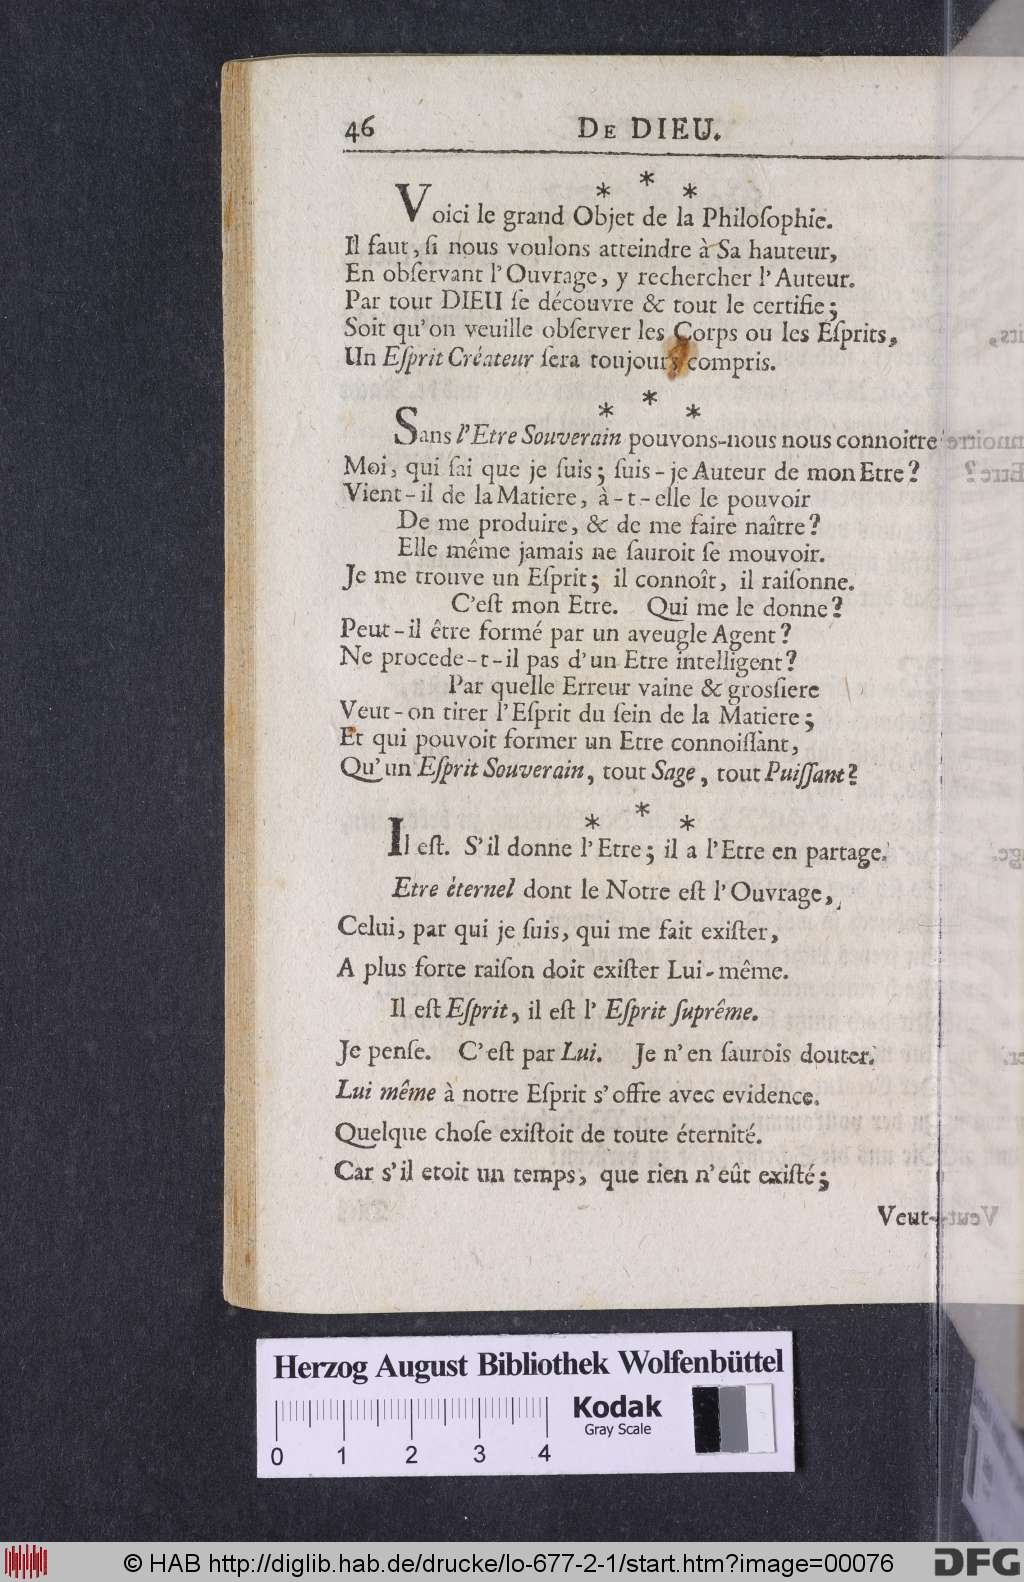 46 DE DIEU.
* * *
Voici le grand Objet de la Philoſophie.
Il faut, ſi nous voulons atteindre à Sa hauteur,
En obſervant l'Ouvrage, y rechercher l'Auteur.
Par tout DIEU ſe découvre & tout le certifie;
Soit qu'on veuille obſerver les Corps ou les Eſprits,
Un Eſprit Créateur ſera toujours compris.
* * *
Sans l'Etre Souverain pouvons-nous nous connoitre
Moi, qui ſai que je ſuis; ſuis-je Auteur de mon Etre?
Vient-il de la Matiere, à-t-elle le pouvoir
De me produire, & de me faire naître?
Elle même jamais ne ſauroit ſe mouvoir.
Je me trouve un Eſprit; il connoît, il raiſonne.
C'eſt mon Etre. Qui me le donne?
Peut-il être formé par un aveugle Agent?
Ne procede-t-il pas d'un Etre intelligent?
Par quelle Erreur vaine & groſſiere
Veut-on tirer l'Eſprit du ſein de la Matiere;
Et qui pouvoit former un Etre connoiſſant,
Qu'un Eſprit Souverain, tout Sage, tout Puiſſant?
* * *
Il eſt. S'il donne l'Etre; il a l'Etre en partage.
Etre éternel dont le Notre eſt l'Ouvrage,
Celui, par qui je ſuis, qui me fait exiſter,
A plus forte raiſon doit exiſter Lui-même.
Il eſt Eſprit, il eſt l' Eſprit ſuprême.
Je penſe. C'eſt par Lui. Je n'en ſaurois douter.
Lui même à notre Eſprit s'offre avec evidence.
Quelque choſe exiſtoit de toute éternité.
Car s'il etoit un temps, que rien n'eût exiſté;
Veut-
Herzog August Bibliothek Wolfenbüttel
Kodak
Gray Scale
0 1 2 3 4
© HAB http://diglib.hab.de/drucke/lo-677-2-1/start.htm?image=00076
DFG